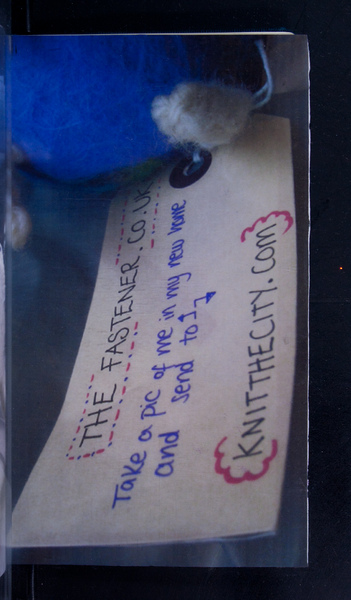 THE FASTENER.CO.UK
Take a pic of me in my new home
and send to
KNITTHECITY.COM